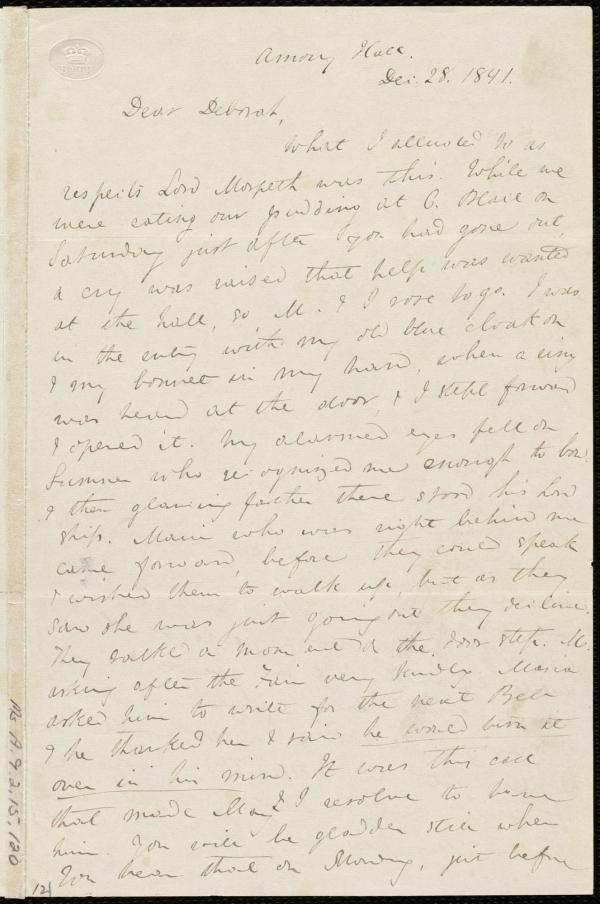 Amory Hall.
Dec. 28. 1841.
Dear Deborah,
What I alluded to as
respects Lord Morpeth was this. While we
were eating our pudding at C. Place on
Saturday just after you had gone out,
a cry was raised that help was wanted
at the hall, so M. & I rose to go. I was
in the entry with my old blue cloak on
& my bonnet in my hand, when a ring
was heard at the door, & I stept forward
& opened it. My alarmed eyes fell on
Sumner who recognized me enough to bow
& then glancing farther there stood his Lord
ship. Maria who was right behind me
came forward, before they could speak
& wished them to walk up, but as they
saw she was just going out they declined.
They talked a moment on the door step. M.
asking after the Fair very kindly. Maria
asked him to write for the next Bell
& he thanked her & said he would turn it
over in his mind. It was this call
that made Mary & I resolve to
him. You will be gladder still when
you hear that on Monday, just before
Ms. A. 9.2.15, 120
121